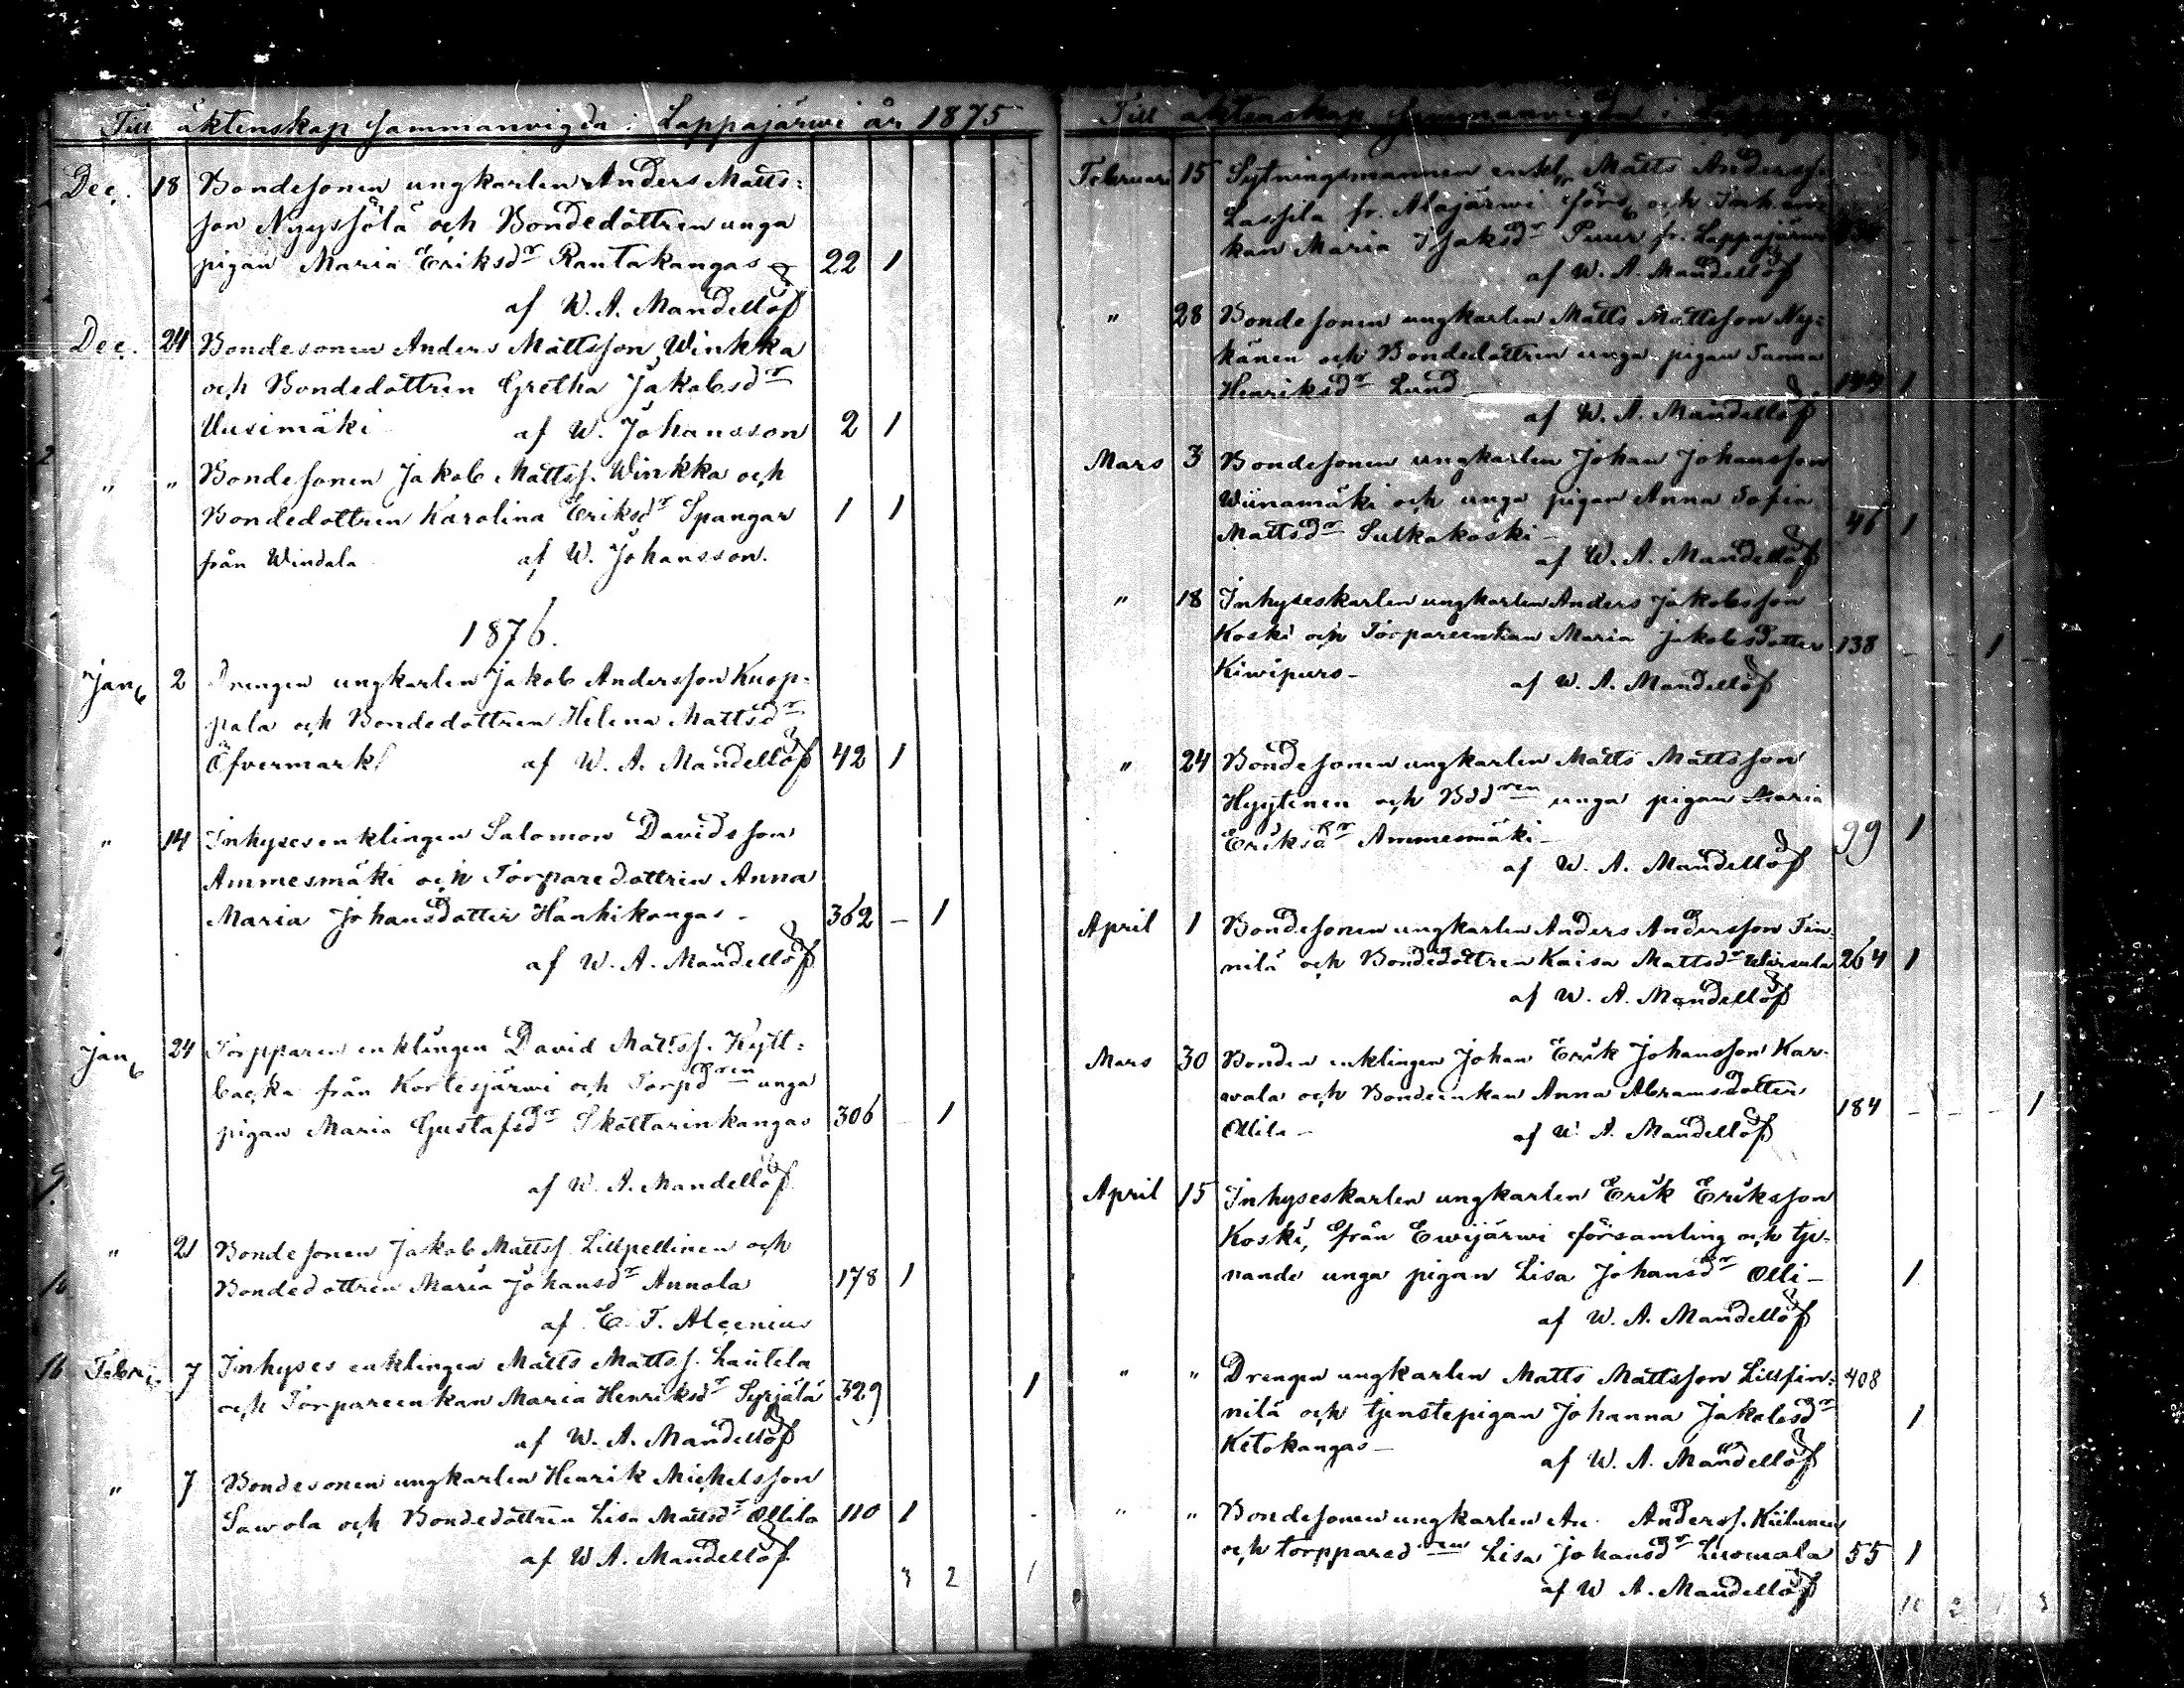 Till äktenskap sammanvigda i Lappajärwi år 1875
Dec. 18 Bondesonen ungkarlen Anders Matts-
son Nyyssölä och Bondedottren unga
pigan Maria Eriksdr Rantakangas 22 1
af W. A. Mandellöf
Dec. 24 Bondesonen Anders Mattsson Winkka
och Bondedottren Gretha Jakobsdr
Uusimäki af W. Johansson 2 1
" " Bondesonen Jakob Mattss. Winkka och
Bondedottren Karolina Eriksdr Spangar 1 1
från Windala af W. Johansson.
1876.
Jan. 2 Drengen ungkarlen Jakob Andersson Kuop-
pala och Bondedottren Helena Mattsdr
Öfvermark af W. A. Mandellöf 42 1
" 14 Inhyses enklingen Salomon Davidsson
Ammesmäki och Torparedottren Anna
Maria Johansdotter Hanhikangas - 362 - 1
af W. A. Mandellöf
Jan. 24 Torpparen enklingen David Mattss. Kytt-
backa från Kortesjärwi och Torpdren unga
pigan Maria Gustafsdr Skottarinkangas 306 - 1
af W. A. Mandellöf
" 21 Bondesonen Jakob Mattss. Lillpellinen och
Bondedottren Maria Johansdr Annola 178 1
af E. F. Alcenius
Febr. 7 Inhyses enklingen Matts Mattss. Lautela
och Torpareenkan Maria Henriksdr Syrjälä 329 1
af W. A. Mandellöf
" 7 Bondesonen ungkarlen Henrik Michelsson
Sawola och Bondedottren Lisa Mattsdr Ollila 110 1
af W. A. Mandellöf
3 2 1
Till äktenskap sammanvigda i
Februari 15 Sytningsmannen enkl. Matts Anderss.
Lassila fr. Alajärwi förs. och Inh. enkan
kan Maria Isaksdr Puur fr. Lappajärwi
af W. A. Mandellöf
" 28 Bondesonen ungkarlen Matts Mattsson Ny-
känen och Bondedottren unga pigan Sanna
Henriksdr Lund 1
af W. A. Mandellöf
Mars 3 Bondesonen ungkarlen Johan Johansson
Wiinamäki och unga pigan Anna Sofia
Mattsdr Sulkakoski - 46 1
af W. A. Mandellöf
" 18 Inhyseskarlen ungkarlen Anders Jakobsson
Koski och Torpareenkan Maria Jakobsdotter 138 - - 1 -
Kiwipuro - af W. A. Mandellöf
" 24 Bondesonen ungkarlen Matts Mattsson
Hyytinen och Bddren unga pigan Maria
Eriksdr Ammesmäki - 99 1
af W. A. Mandellöf
April 1 Bondesonen ungkarlen Anders Andersson Fin-
nilä och Bondedottren Kaisa Mattsdr 264 1
af W. A. Mandellöf
Mars 30 Bonden enklingen Johan Erik Johansson Kar-
wala och Bondeenkan Anna Abramsdotter
Ollila - 184 - - - 1
af W. A. Mandellöf
April 15 Inhyseskarlen ungkarlen Erik Eriksson
Koski, från Ewijärwi församling och tje-
nande unga pigan Lisa Johansdr Olli - 1
af W. A. Mandellöf
" " Drengen ungkarlen Matts Mattsson Lillfin- 408
nilä och tjenstepigan Johanna Jakobsdr 1
Ketokangas -
af W. A. Mandellöf
" " Bondesonen ungkarlen An. Anderss. Kiilunen
och torpparedren Lisa Johansdr Luomala 55 1
af W. A. Mandellöf